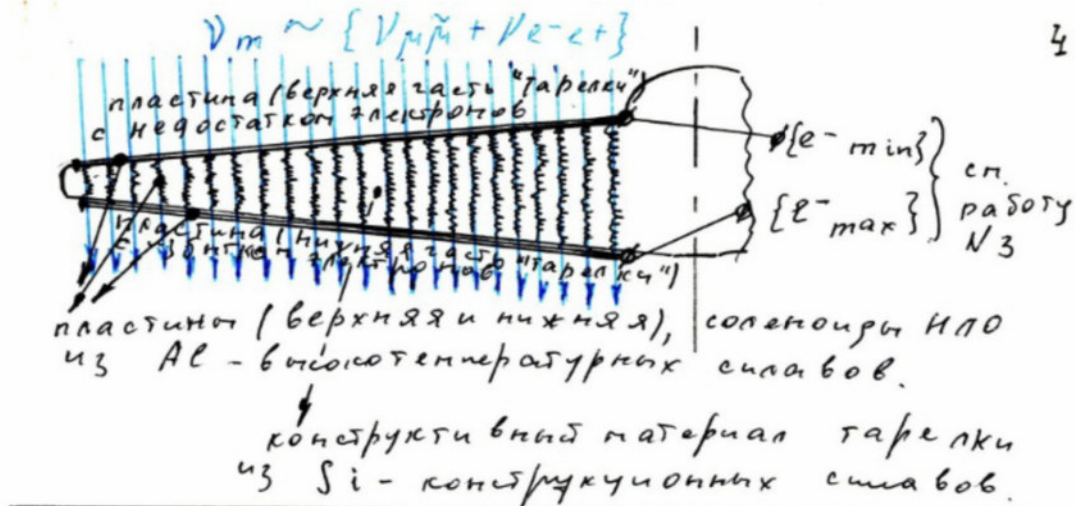 ν m ~ { ν μ μ̃ + ν e⁻ e⁺ }
4
пластина (верхняя часть "тарелки")
с недостатком электронов
{e⁻ min}
{e⁻ max}
см.
работу
N3
пластина (нижняя часть "тарелки")
с избытком электронов
пластины (верхняя и нижняя), соленоиды НЛО
из Al - высокотемпературных сплавов.
конструктивный материал тарелки
из Si - конструкционных сплавов.